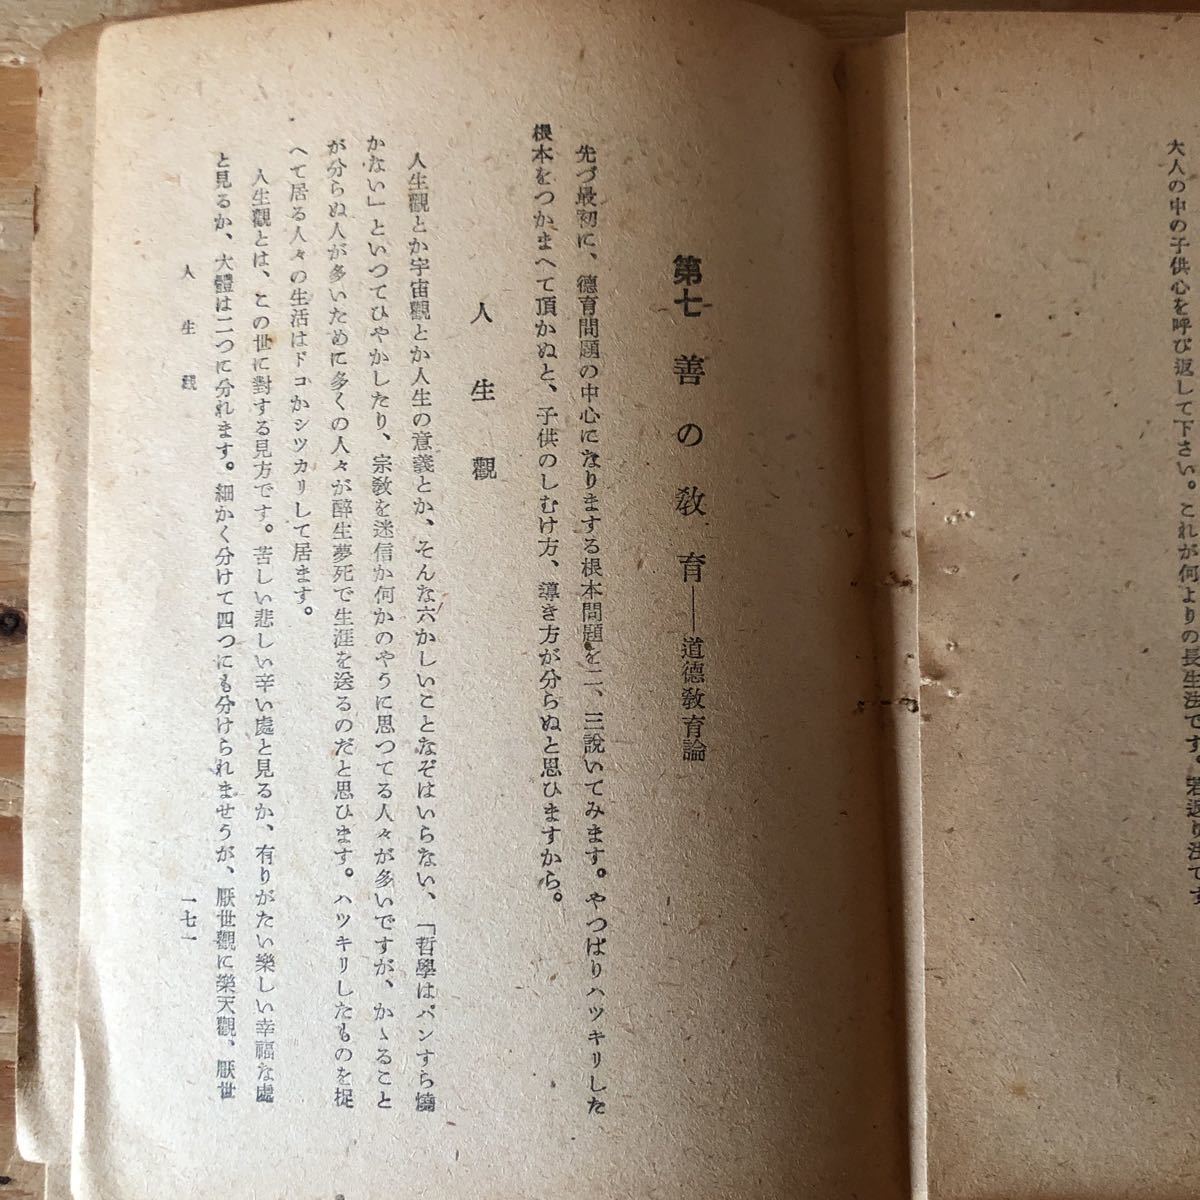 大人の中の子供心を呼び返して下さい。これが何よりの長生法です。若返り法です
第七 善の教育——道德教育論
先づ最初に、德育問題の中心になりまする根本問題を二、三說いてみます。やつぱりハツキリした
根本をつかまへて頂かぬと、子供のしむけ方、導き方が分らぬと思ひますから。
人生觀
人生觀とか宇宙觀とか人生の意義とか、そんな六かしいことなぞはいらない、「哲學はパンすら燒
かない」といつてひやかしたり、宗教を迷信か何かのやうに思つてる人々が多いですが、かゝること
が分らぬ人が多いために多くの人々が醉生夢死で生涯を送るのだと思ひます。ハツキリしたものを捉
へて居る人々の生活はドコかシツカリして居ます。
人生觀とは、この世に對する見方です。苦しい悲しい辛い處と見るか、有りがたい樂しい幸福な處
と見るか、大體は二つに分れます。細かく分けて四つにも分けられませうが、厭世觀に樂天觀、厭世
人生觀
一七一